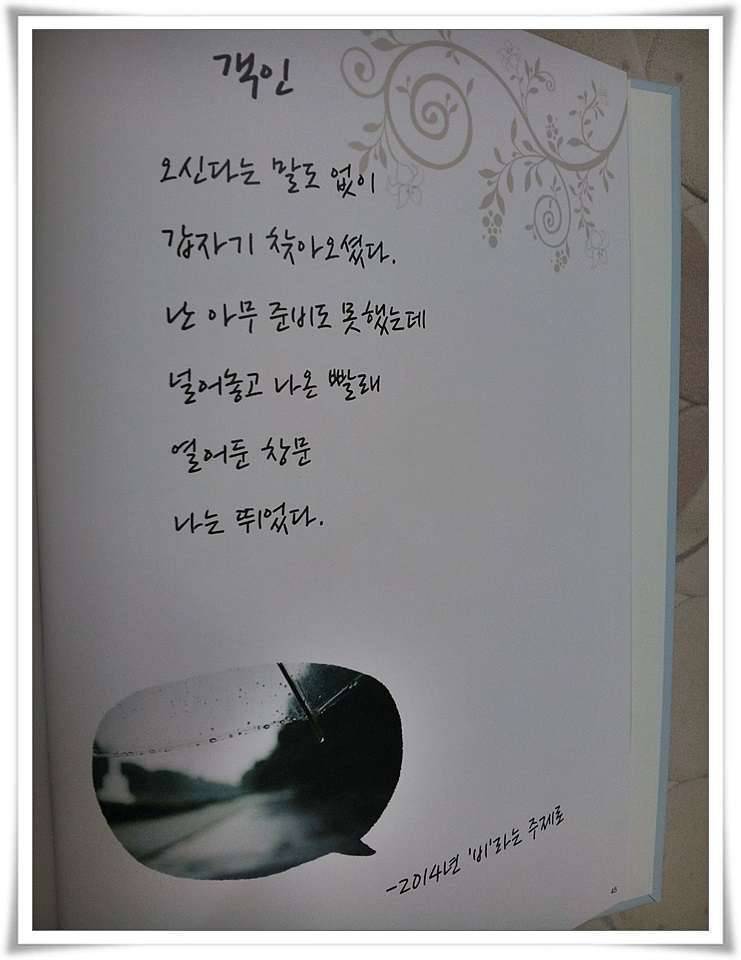 객인
오신다는 말도 없이
갑자기 찾아오셨다.
난 아무 준비도 못했는데
널어놓고 나온 빨래
열어둔 창문
나는 뛰었다.
-2014년 '비'라는 주제로